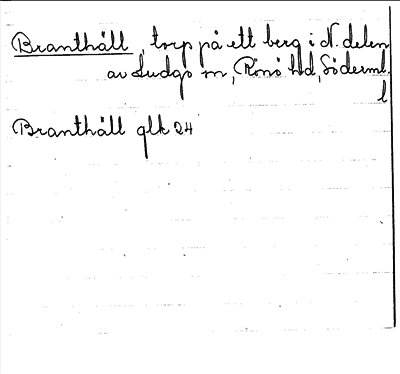 Branthäll, torp på ett berg i N. delen
av Ludgo sn, Rönö hd, Söderml.
l
Branthäll glk 24